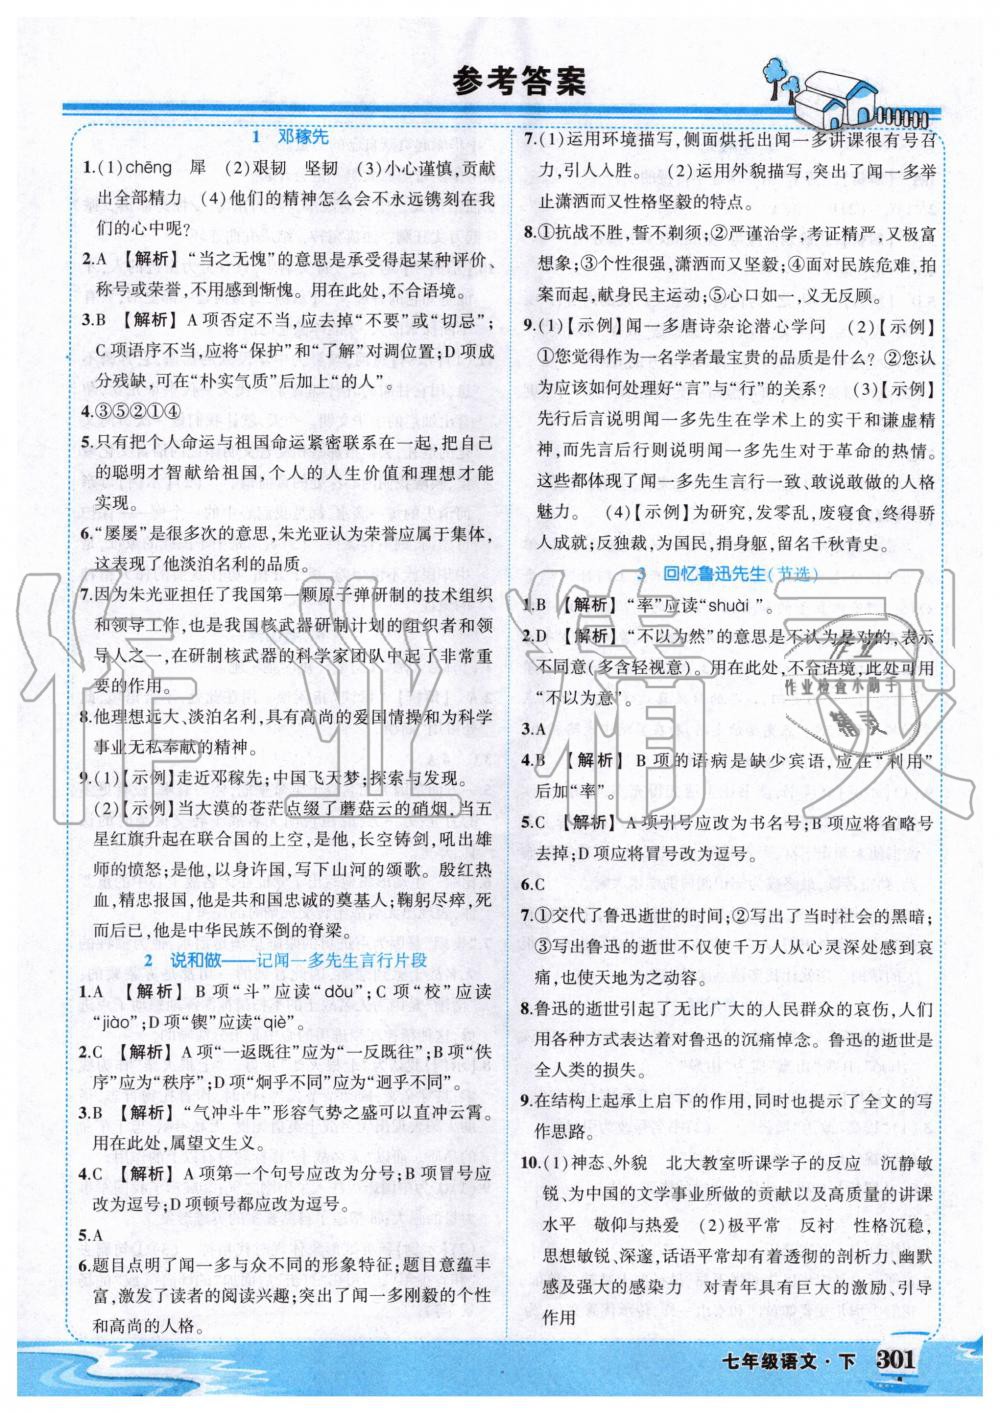 参考答案
1 邓稼先
1.(1)chēng 犀 (2)艰韧 坚韧 (3)小心谨慎,贡献
出全部精力 (4)他们的精神怎么会不永远镌刻在我
们的心中呢?
2.A 【解析】“当之无愧”的意思是承受得起某种评价、
称号或荣誉,不用感到惭愧。用在此处,不合语境。
3.B 【解析】A项否定不当,应去掉“不要”或“切忌”;
C项语序不当,应将“保护”和“了解”对调位置;D项成
分残缺,可在“朴实气质”后加上“的人”。
4.③⑤②①④
5.只有把个人命运与祖国命运紧密联系在一起,把自己
的聪明才智献给祖国,个人的人生价值和理想才能
实现。
6.“屡屡”是很多次的意思,朱光亚认为荣誉应属于集体,
这表现了他淡泊名利的品质。
7.因为朱光亚担任了我国第一颗原子弹研制的技术组织
和领导工作,也是我国核武器研制计划的组织者和领
导人之一,在研制核武器的科学家团队中起了非常重
要的作用。
8.他理想远大、淡泊名利,具有高尚的爱国情操和为科学
事业无私奉献的精神。
9.(1)【示例】走近邓稼先;中国飞天梦;探索与发现。
(2)【示例】当大漠的苍茫点缀了蘑菇云的硝烟,当五
星红旗升起在联合国的上空,是他,长空铸剑,吼出雄
师的愤怒;是他,以身许国,写下山河的颂歌。殷红热
血,精忠报国,他是共和国忠诚的奠基人;鞠躬尽瘁,死
而后已,他是中华民族不倒的脊梁。
2 说和做——记闻一多先生言行片段
1.A 【解析】B项“斗”应读“dǒu”;C项“校”应读
“jiào”;D项“锲”应读“qiè”。
2.C 【解析】A项“一返既往”应为“一反既往”;B项“佚
序”应为“秩序”;D项“炯乎不同”应为“迥乎不同”。
3.B 【解析】“气冲斗牛”形容气势之盛可以直冲云霄。
用在此处,属望文生义。
4.C 【解析】A项第一个句号应改为分号;B项冒号应
改为逗号;D项顿号都应改为逗号。
5.A
6.题目点明了闻一多与众不同的形象特征;题目意蕴丰
富,激发了读者的阅读兴趣;突出了闻一多刚毅的个性
和高尚的人格。
7.(1)运用环境描写,侧面烘托出闻一多讲课很有号召
力,引人入胜。(2)运用外貌描写,突出了闻一多举
止潇洒而又性格坚毅的特点。
8.①抗战不胜,誓不剃须;②严谨治学,考证精严,又极富
想象;③个性很强,潇洒而又坚毅;④面对民族危难,拍
案而起,献身民主运动;⑤心口如一,义无反顾。
9.(1)【示例】闻一多唐诗杂论潜心学问 (2)【示例】
①您觉得作为一名学者最宝贵的品质是什么?②您认
为应该如何处理好“言”与“行”的关系? (3)【示例】
先行后言说明闻一多先生在学术上的实干和谦虚精
神,而先言后行说明闻一多先生对于革命的热情。
这些都体现了闻一多先生言行一致、敢说敢做的人格
魅力。 (4)【示例】为研究,发零乱,废寝食,终得骄
人成就;反独裁,为国民,捐身躯,留名千秋青史。
3 回忆鲁迅先生(节选)
1.B 【解析】“率”应读“shuài”。
2.D 【解析】“不以为然”的意思是不认为是对的,表示
不同意(多含轻视意)。用在此处,不合语境,此处可用
“不以为意”。
3.A
4.B 【解析】B项的语病是缺少宾语,应在“利用”
后加“率”。
5.C 【解析】A项引号应改为书名号;B项应将省略号
去掉;D项应将冒号改为逗号。
6.C
7.①交代了鲁迅逝世的时间;②写出了当时社会的黑暗;
③写出鲁迅的逝世不仅使千万人从心灵深处感到哀
痛,也使天地为之动容。
8.鲁迅的逝世引起了无比广大的人民群众的哀伤,人们
用各种方式表达着对鲁迅的沉痛悼念。鲁迅的逝世是
全人类的损失。
9.在结构上起承上启下的作用,同时也提示了全文的写
作思路。
10.(1)神态、外貌 北大教室听课学子的反应 沉静敏
锐、为中国的文学事业所做的贡献以及高质量的讲课
水平 敬仰与热爱 (2)极平常 反衬 性格沉稳,
思想敏锐、深邃,话语平常却有着透彻的剖析力、幽默
感及强烈的感染力 对青年具有巨大的激励、引导
作用
作业精灵
作业
作业检查小助手
精灵
七年级语文·下 301